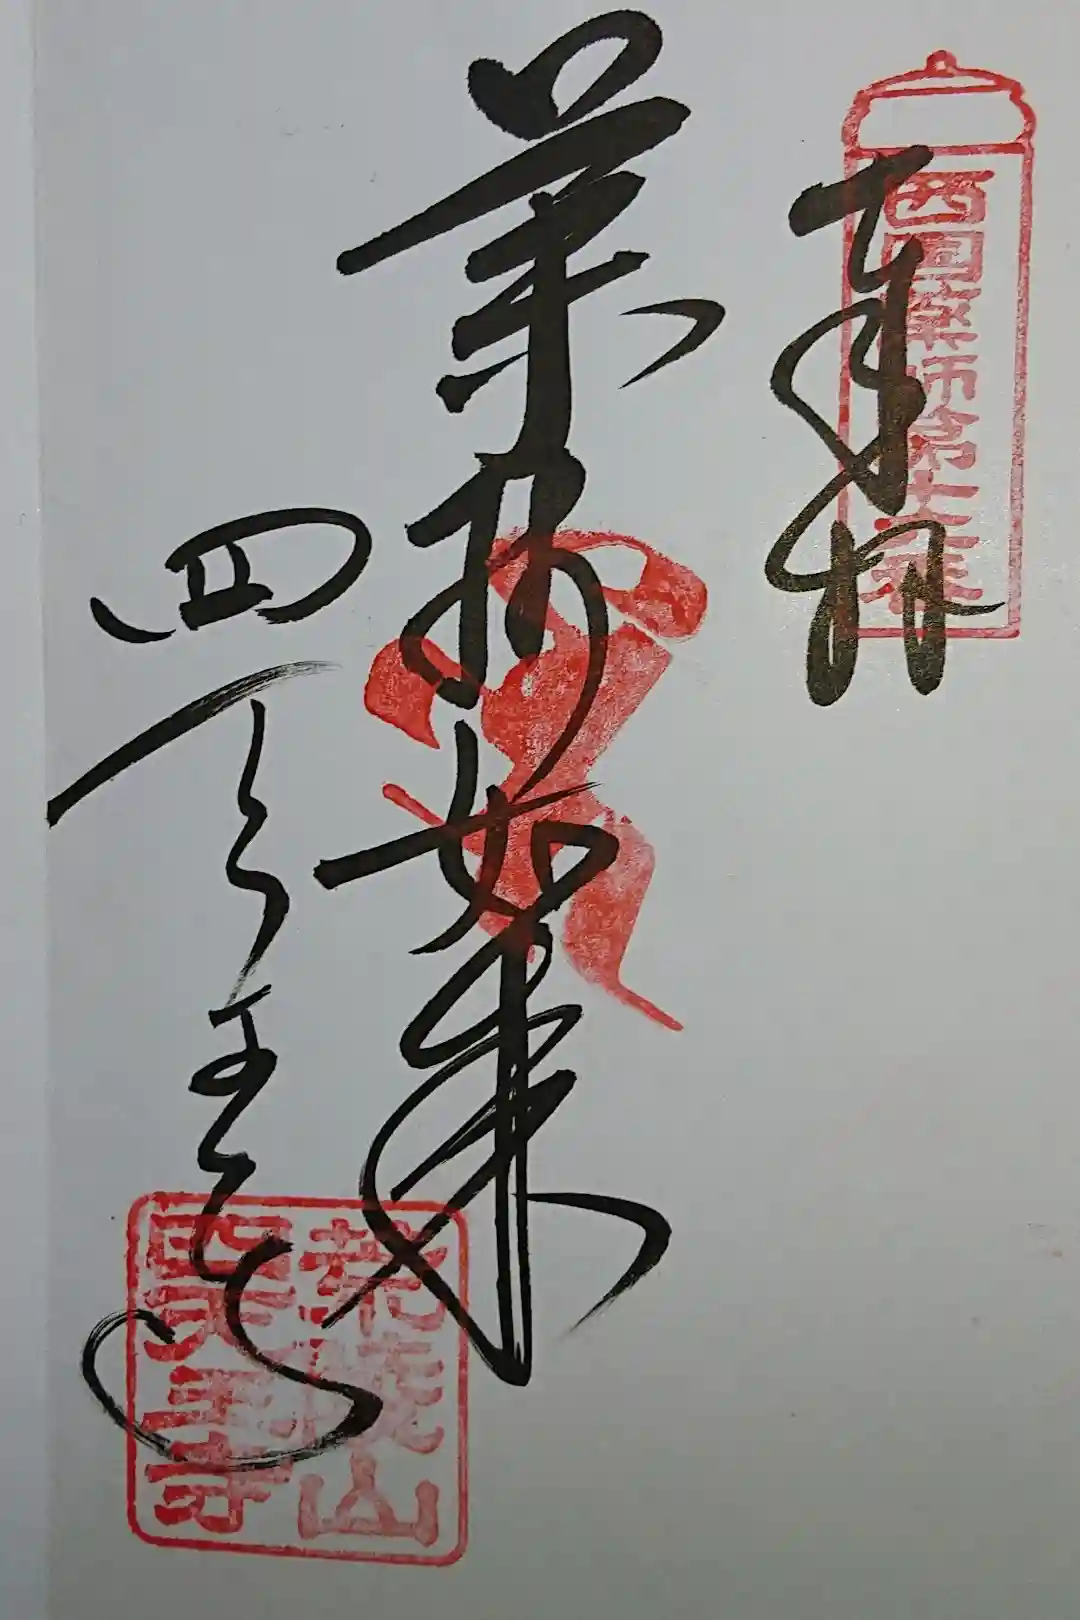 奉拝
西国薬師第十六番
薬師如来
四天王寺
荒陵山
四天王寺